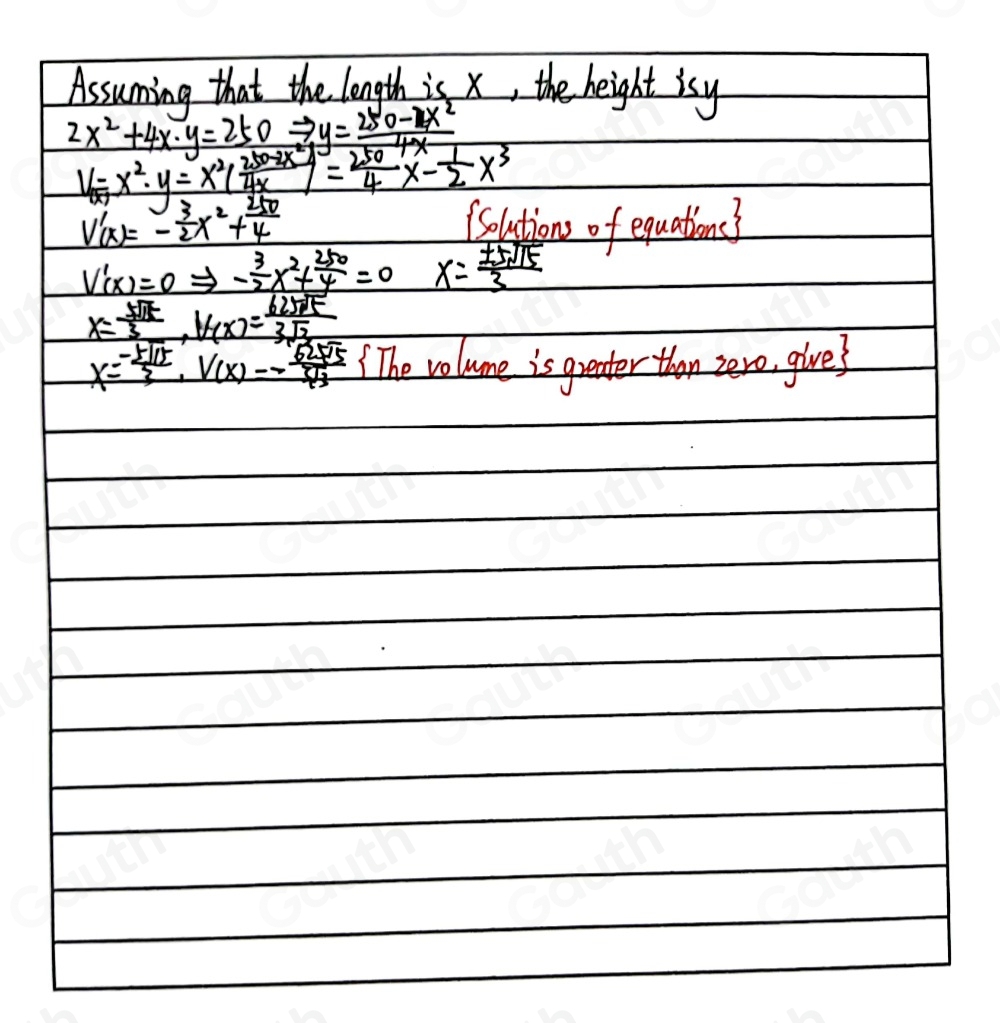 Assuming that the length is x, the height is y
2x²+4x·y=250 ⇒ y=(250-2x²)/4x
V(x)=x²·y=x²((250-2x²)/4x)=250/4 x-1/2 x³
V'(x)=-3/2x²+250/4 {Solutions of equations}
V'(x)=0 ⇒ -3/2x²+250/4=0 x=±5√15/3
x=5√15/3, V(x)=625√5/3√3
x=-5√15/3, V(x)=-625√5/3√3 {The volume is greater than zero, give}
Gauth